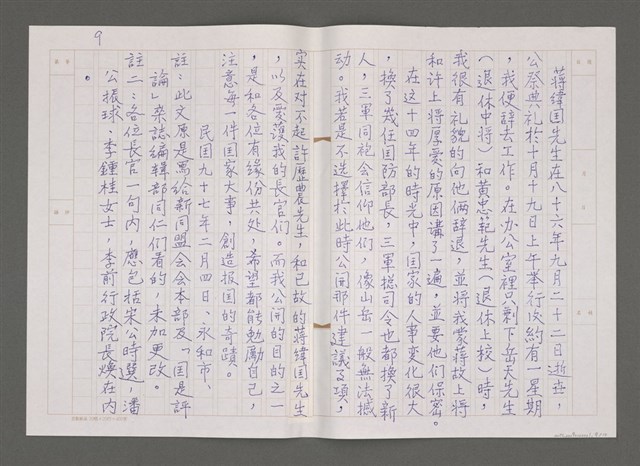 蔣緯国先生在八十六年九月二十二日逝去,
公祭典礼於十月十九日上午举行後約有一星期
,我便辞去工作。在办公室裡只剩下岳天先生
(退休中將)和黄忠範先生(退休上校)時,
我很有礼貌的向他俩辞退,並將我蒙蒋故上将
和许上將厚爱的原因講了一遍,並要他们保密。
在这十四年的時光中,国家的人事变化很大
,換了幾任国防部長,三軍総司令也都換了新
人,三軍同袍会信仰他们,像山岳一般無法撼
动。我若是不选擇於此時公開那件建議及項,
实在对不起許歷農先生,和已故的蒋緯国先生
,以及爱護我的長官们。而我公開的目的之一
,是和各位有緣份共处,希望都能勉勵自己,
注意每一件国家大事,創造报国的奇蹟。
民国九十七年二月四日、永和市、
註:此文原是寫給新同盟会会本部及「国是評
論」杂誌编輯部同仁们看的,未加更改。
註二:各位長官一句內,應包括宋公時選,潘
公振球、李鍾桂女士,李前行政院長煥在内
。
9